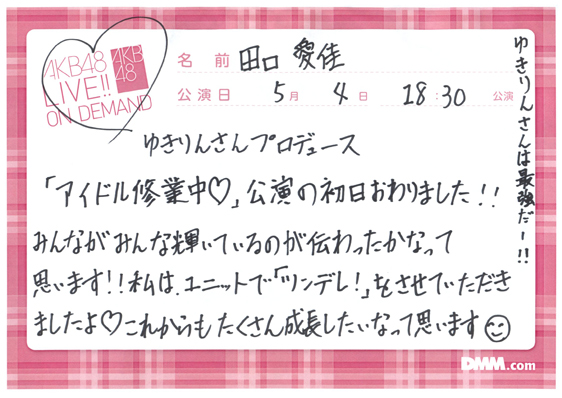 AKB48
LIVE!!
ON DEMAND
AKB
48
名前 田口 愛佳
公演日 5月 4日 18:30 公演
ゆきりんさんプロデュース
「アイドル修業中♡」公演の初日おわりました!!
みんながみんな輝いているのが伝わったかなって
思います!!私は、ユニットで「ツンデレ!」をさせていただき
ましたよ♡これからもたくさん成長したいなって思います☺
ゆきりんさんは最強だー!!
DMM.com